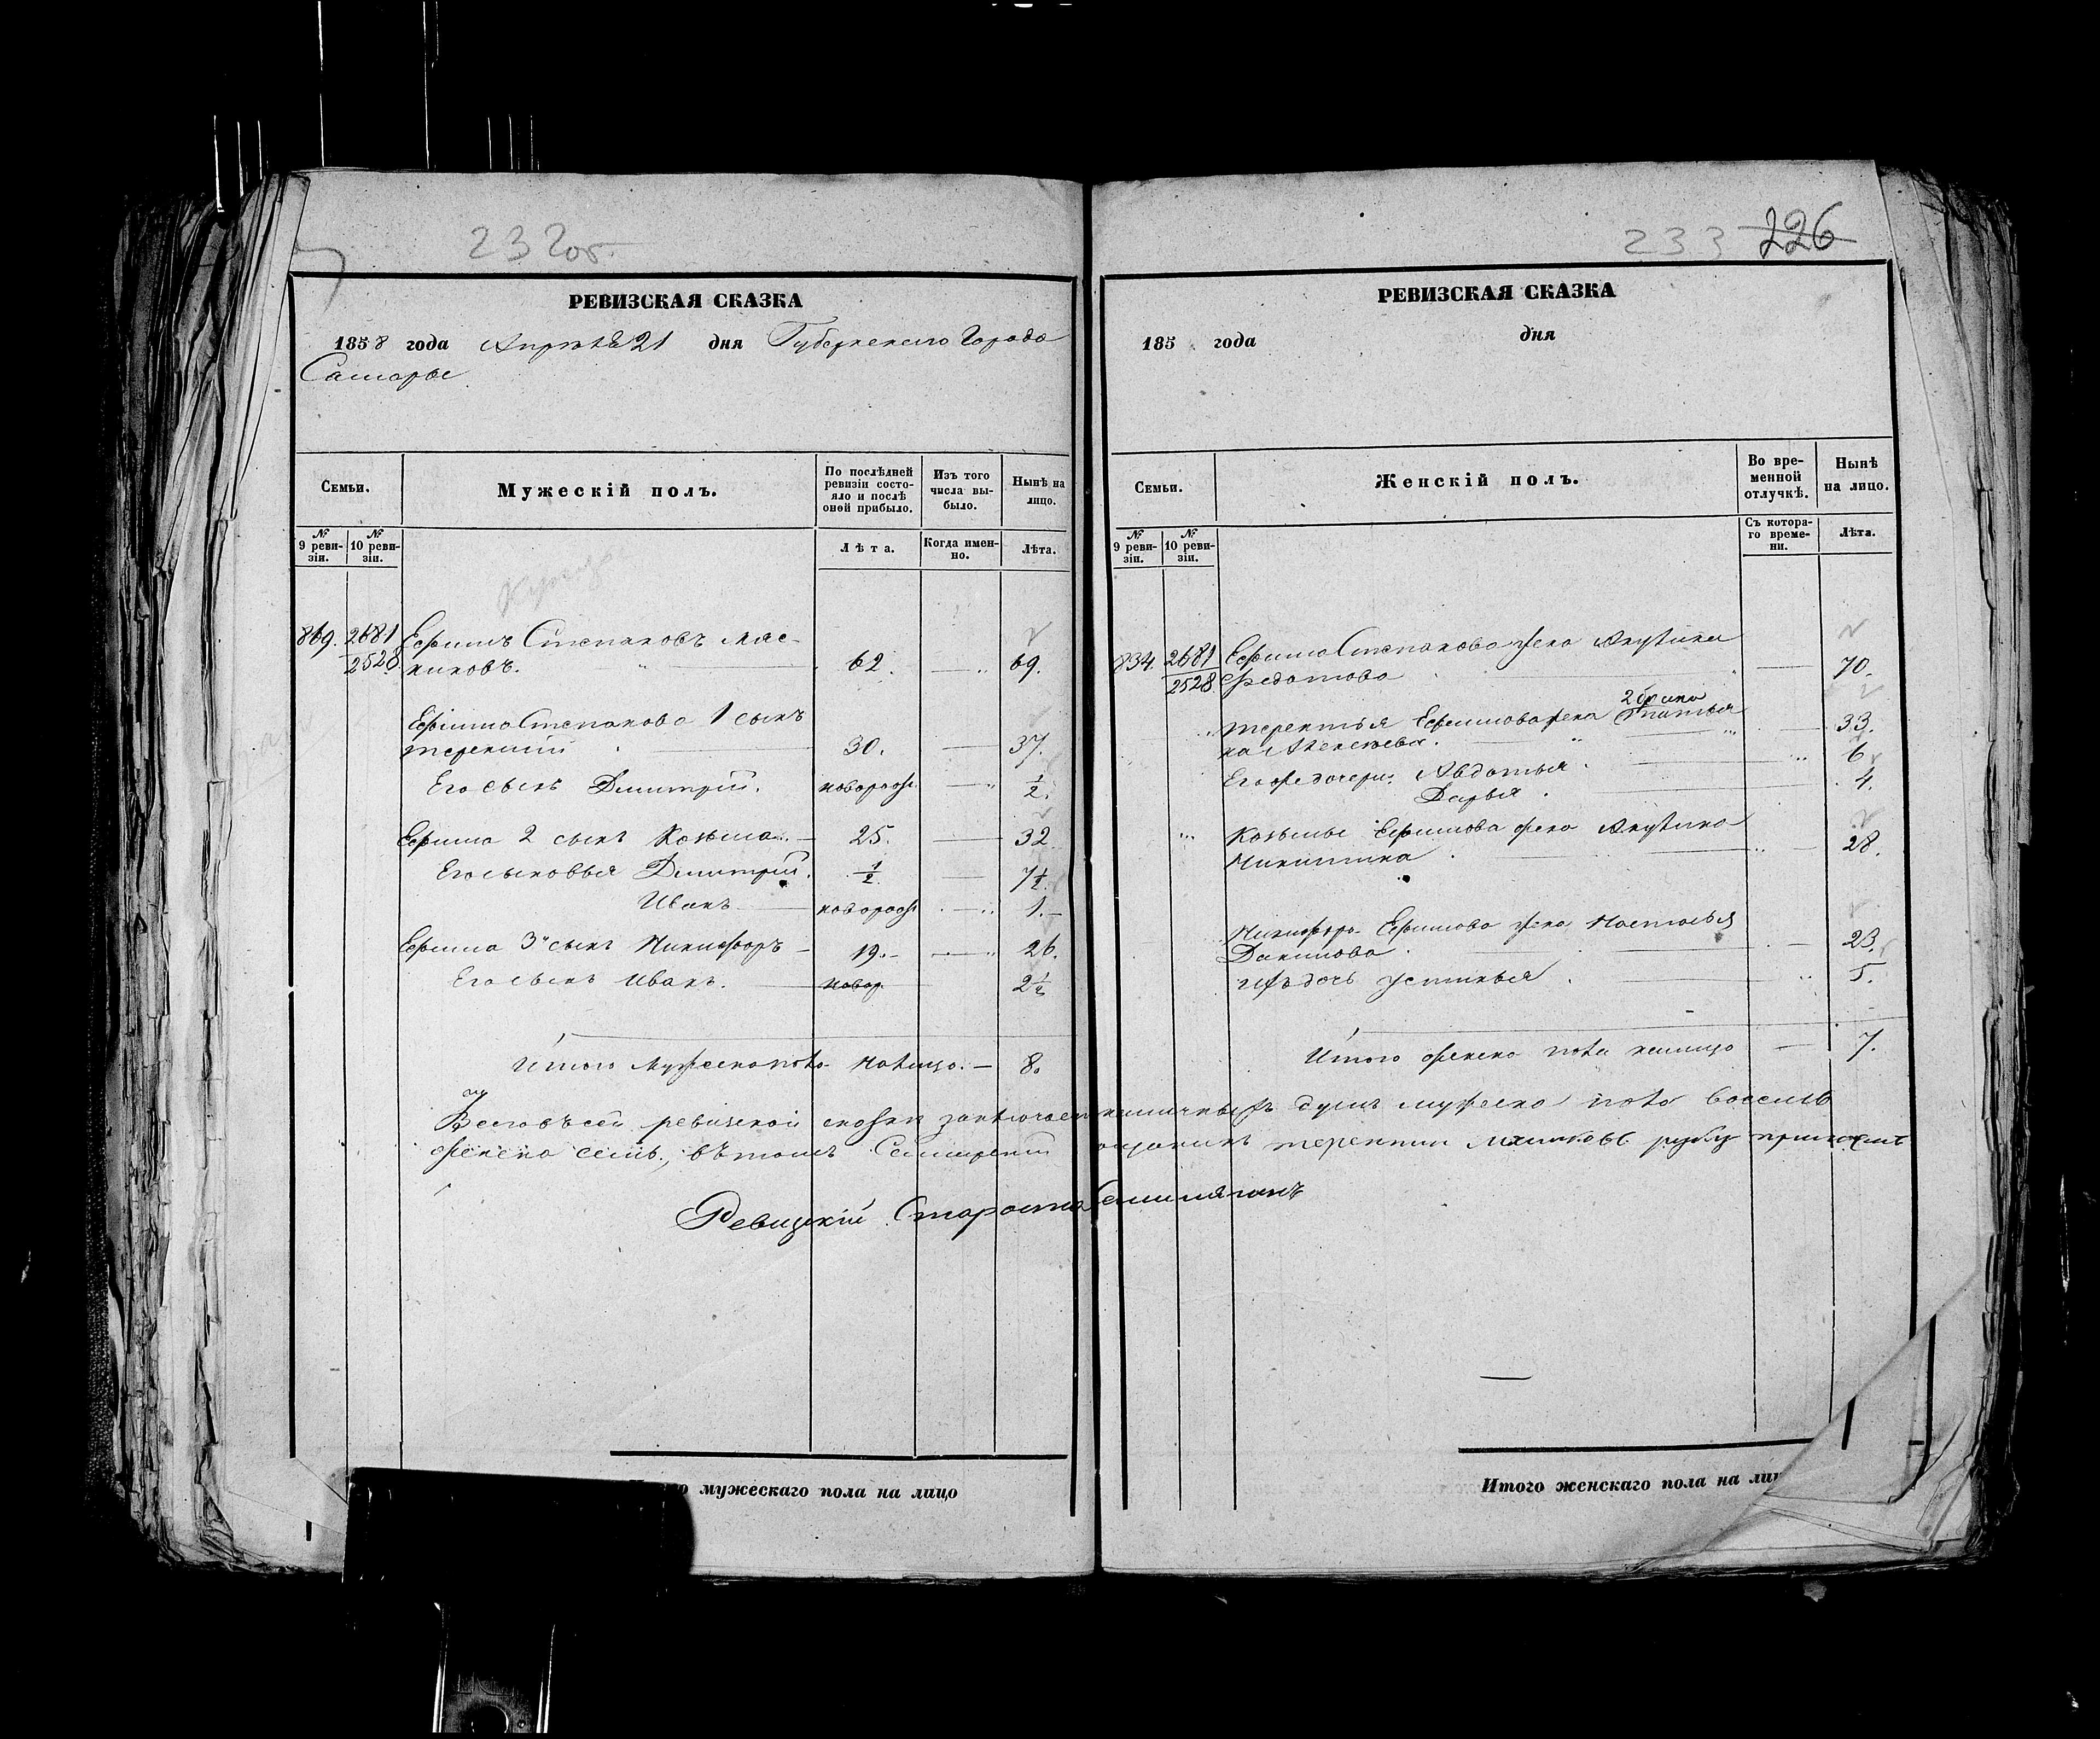 232об.
РЕВИЗСКАЯ СКАЗКА
1858 года Апреля 21 дня Губернского Города
Самары
Семьи.
Мужескій полъ.
По послѣдней ревизіи состояло и послѣ оной прибыло.
Изъ того числа выбыло.
Нынѣ на лицо.
№ 9 ревизіи.
№ 10 ревизіи.
Лѣта.
Когда именно.
Лѣта.
869. 2681 Ефимъ Степановъ Мяс-
2528 никовъ. 62. 69.
Ефима Степанова 1 сынъ
Терентий 30. 37.
Его сынъ Димитрий. новорож. 1/2.
Ефима 2 сынъ Козьма 25. 32
Его сыновья Димитрий. 1/2. 7 1/2.
Иванъ новорож 1.
Ефима 3й сынъ Никифоръ 19. 26.
Его сынъ Иванъ. новор. 2 1/2
Итого мужеска пола налицо. 8.
233 226
РЕВИЗСКАЯ СКАЗКА
185 года дня
Семьи.
Женскій полъ.
Во временной отлучкѣ.
Нынѣ на лицо.
№ 9 ревизіи.
№ 10 ревизіи.
Съ котораго времени.
Лѣта.
834. 2681 Ефима Степанова жена Акулина
2528 Федотова 70.
2 брака
Терентья Ефимова жена 33.
Его же дочери Авдотья 6
Дарья 4.
Козьмы Ефимова жена Акулина
Никитина 28.
Никифора Ефимова жена Настасья
Данилова 23.
ихъ дочь Устинья 5.
Итого женска пола налицо 7.
ревизской сказки наличныхъ душъ мужеска пола восемь
женска семь, въ томъ Терентий руку приложил
Ревизскій Староста
Итого мужескаго пола на лицо
Итого женскаго пола на лиц